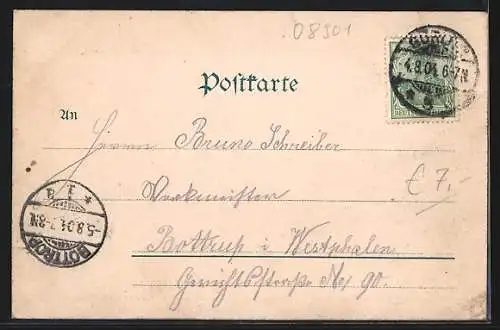 08301
GÖRLITZ
4.8.04.6-7N.
Postkarte
An
Herrn Bruno Schreiber
€ 7,-
Werkmeister
* 1 B
-5.8.04.7-8N.
BOTTROP
Bottrup i. Westphalen
Gerichtsstraße No 90.